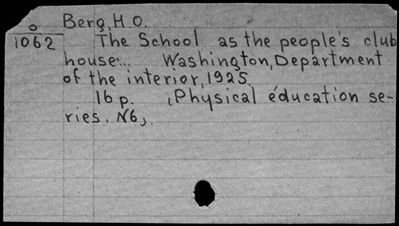 o
1062
Berg, H.O.
The School as the people's club
house... Washington, Department
of the interior, 1925.
16 p. (Physical education se-
ries. №6).